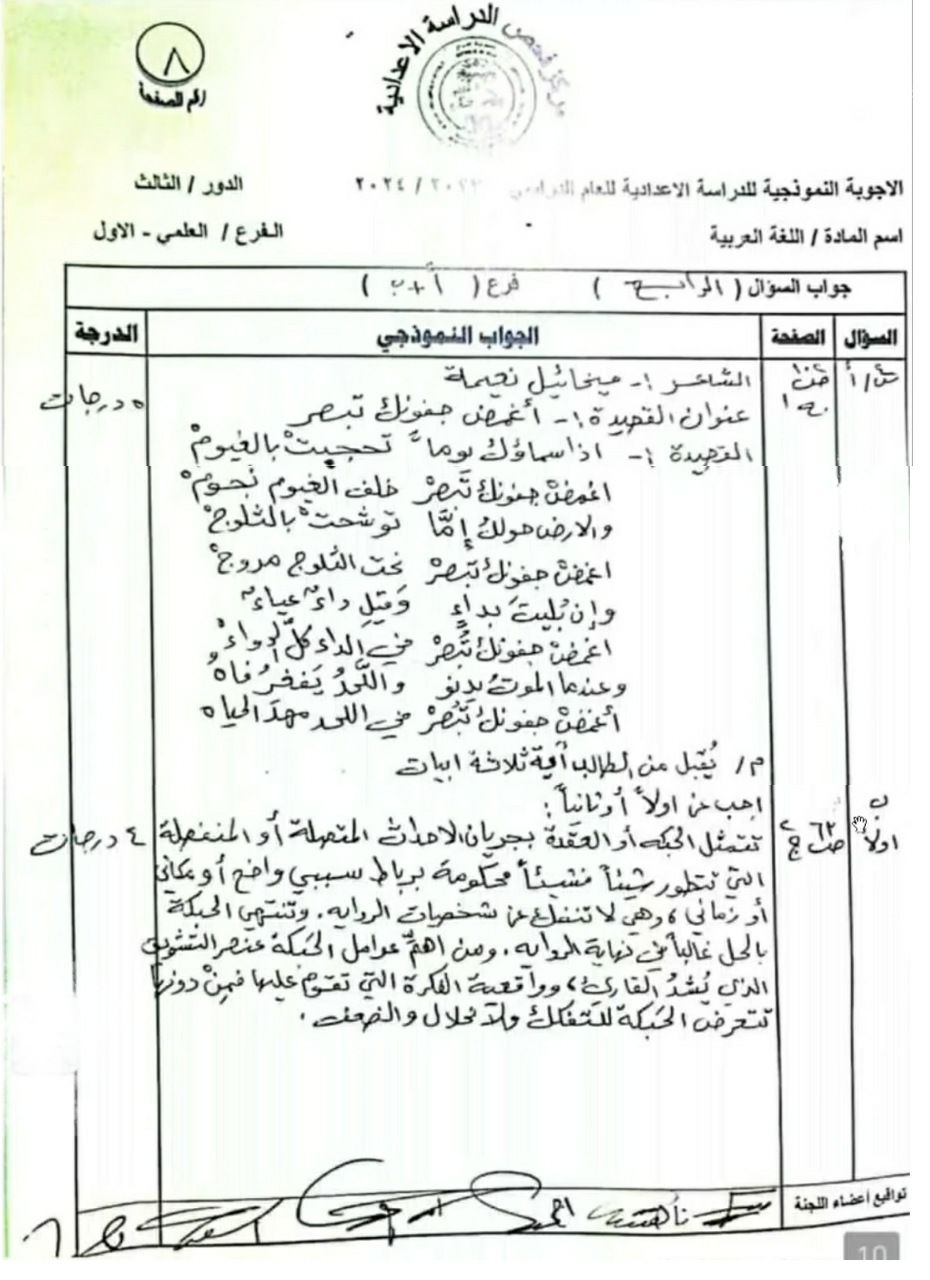 مركز فحص الدراسة الاعدادية
٨
رقم الصفحة
الاجوبة النموذجية للدراسة الاعدادية للعام الدراسي ٢٠٢٣ / ٢٠٢٤ الدور / الثالث
اسم المادة / اللغة العربية الفرع / العلمي - الاول
جواب السؤال ( الرابع ) فرع ( أ + ب )
السؤال الصفحة الجواب النموذجي الدرجة
الشاعر :- ميخائيل نعيمة
٥ درجات
عنوان القصيدة :- أغمض جفونك تبصر
القصيدة :- اذا سماؤك يوماً تحجبتْ بالغيومْ
اغمضْ جفونك تُبصرْ خلف الغيوم نجومْ
والارض حولك إمَّا توشحتْ بالثلوجْ
اغمضْ جفونك تبصرْ تحت الثلوج مروجْ
وإن بُليتَ بداءٍ وَقيل داءٌ عياءْ
اغمضْ جفونك تُبصرْ في الداء كلَّ الدواءْ
وعندما الموتُ يدنو واللَّحدُ يَفغرُ فاهْ
أغمضْ جفونك تُبصرْ في اللحد مهدَ الحياه
م/ يُقبل من الطالب أية ثلاثة ابيات
ب
اجب عن اولاً أو ثانياً :
اولاً ص ٦٢ ج ٢ تتمثل الحبكه أو العقدة بجريان الاحداث المتصلة أو المنفصلة ٤ درجات
التي تتطور شيئاً فشيئاً محكومة برباط سببي واضح أو مكاني
أو زماني ، وهي لا تنفك عن شخصيات الروايه . وتنتهي الحبكة
بالحل غالباً في نهاية الروايه . ومن اهمِّ عوامل الحَبكة عنصر التشويق
الذي يُشدُّ القارئ ، وواقعية الفكرة التي تقومُ عليها فمِنْ دونها
تتعرض الحَبكة للتفكك والانحلال والضعف .
تواقيع أعضاء اللجنة
10